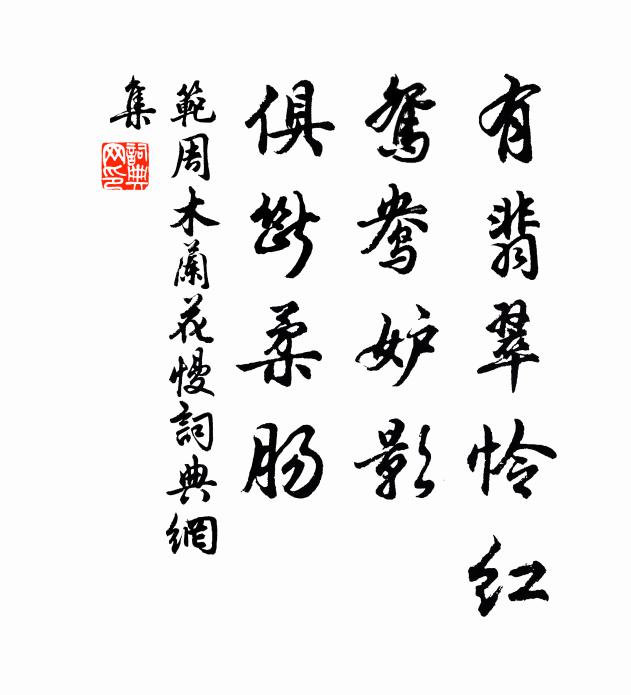 有翡翠怜红
鸳鸯妒影
俱断柔肠
範周木蘭花慢詞典網
集
詞典
网印